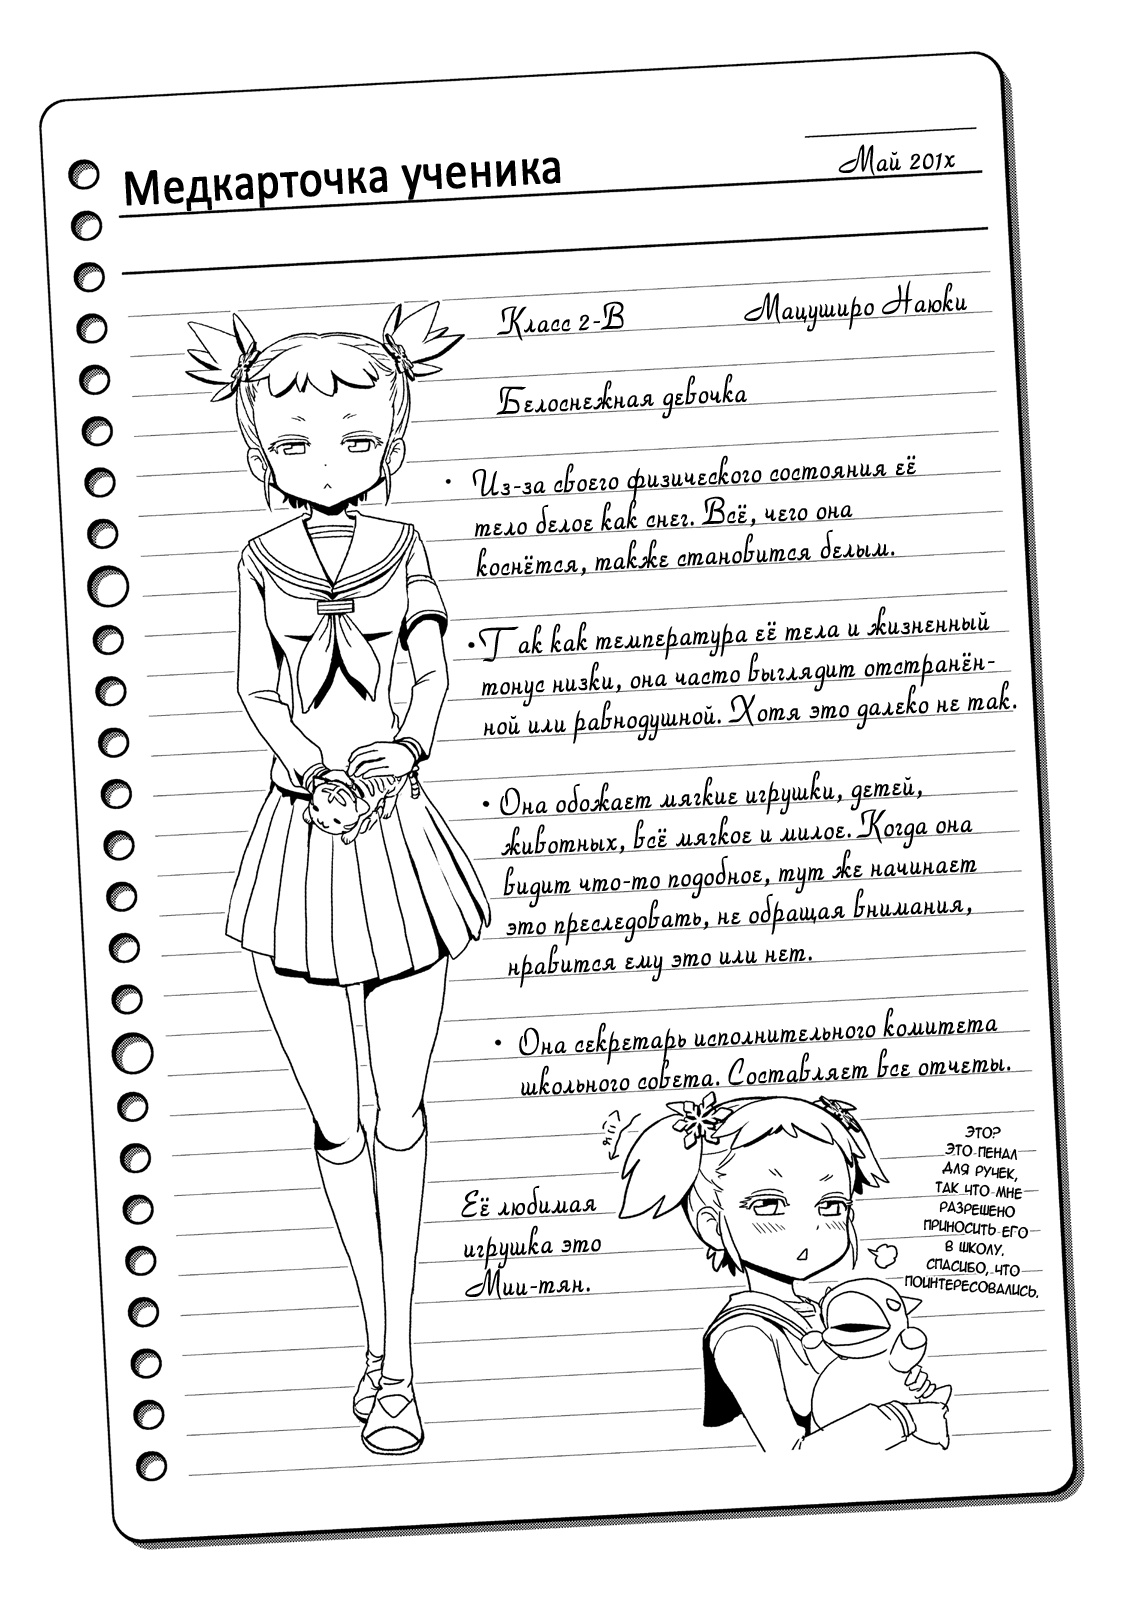 Медкарточка ученика
Май 201x
Класс 2-В
Мацуширо Наюки
Белоснежная девочка
• Из-за своего физического состояния её
тело белое как снег. Всё, чего она
коснётся, также становится белым.
• Так как температура её тела и жизненный
тонус низки, она часто выглядит отстранён-
ной или равнодушной. Хотя это далеко не так.
• Она обожает мягкие игрушки, детей,
животных, всё мягкое и милое. Когда она
видит что-то подобное, тут же начинает
это преследовать, не обращая внимания,
нравится ему это или нет.
• Она секретарь исполнительного комитета
школьного совета. Составляет все отчеты.
Её любимая
игрушка это
Мии-тян.
ЭТО?
ЭТО ПЕНАЛ
ДЛЯ РУЧЕК,
ТАК ЧТО МНЕ
РАЗРЕШЕНО
ПРИНОСИТЬ ЕГО
В ШКОЛУ.
СПАСИБО, ЧТО
ПОИНТЕРЕСОВАЛИСЬ.